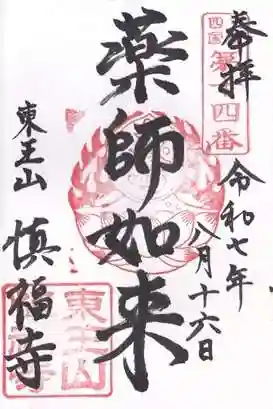 奉拝
四国
第十四番
令和七年
八月十六日
薬師如来
東王山
慎福寺
東王山